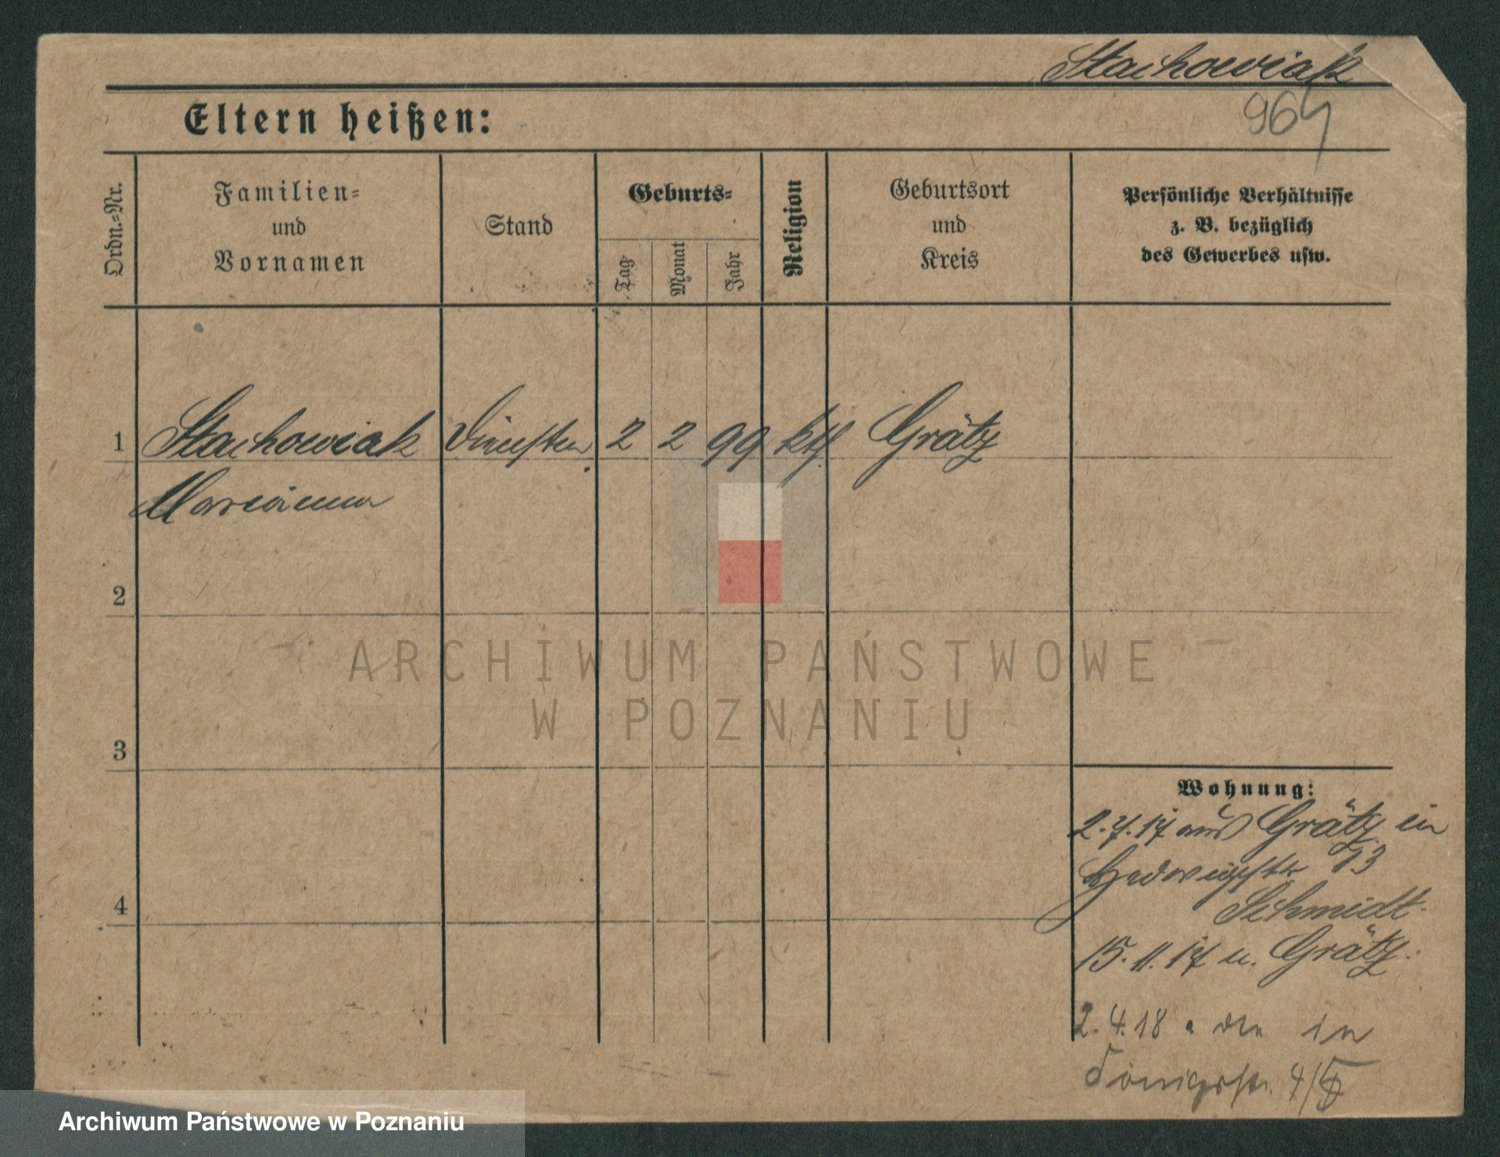 Stachowiak
964
Eltern heißen:
Ordn.-Nr.
Familien-
und
Vornamen
Stand
Geburts-
Tag
Monat
Jahr
Religion
Geburtsort
und
Kreis
Persönliche Verhältnisse
z. B. bezüglich
des Gewerbes usw.
1 Stachowiak 2 2 99 kth Grätz
Marianna
2
ARCHIWUM PAŃSTWOWE
W POZNANIU
3
Wohnung:
2.7.17 aus Grätz in
Hedwigstr. 13
Schmidt.
4
15.11.17 n. Grätz.
2.4.18 in
Königsstr.
Archiwum Państwowe w Poznaniu